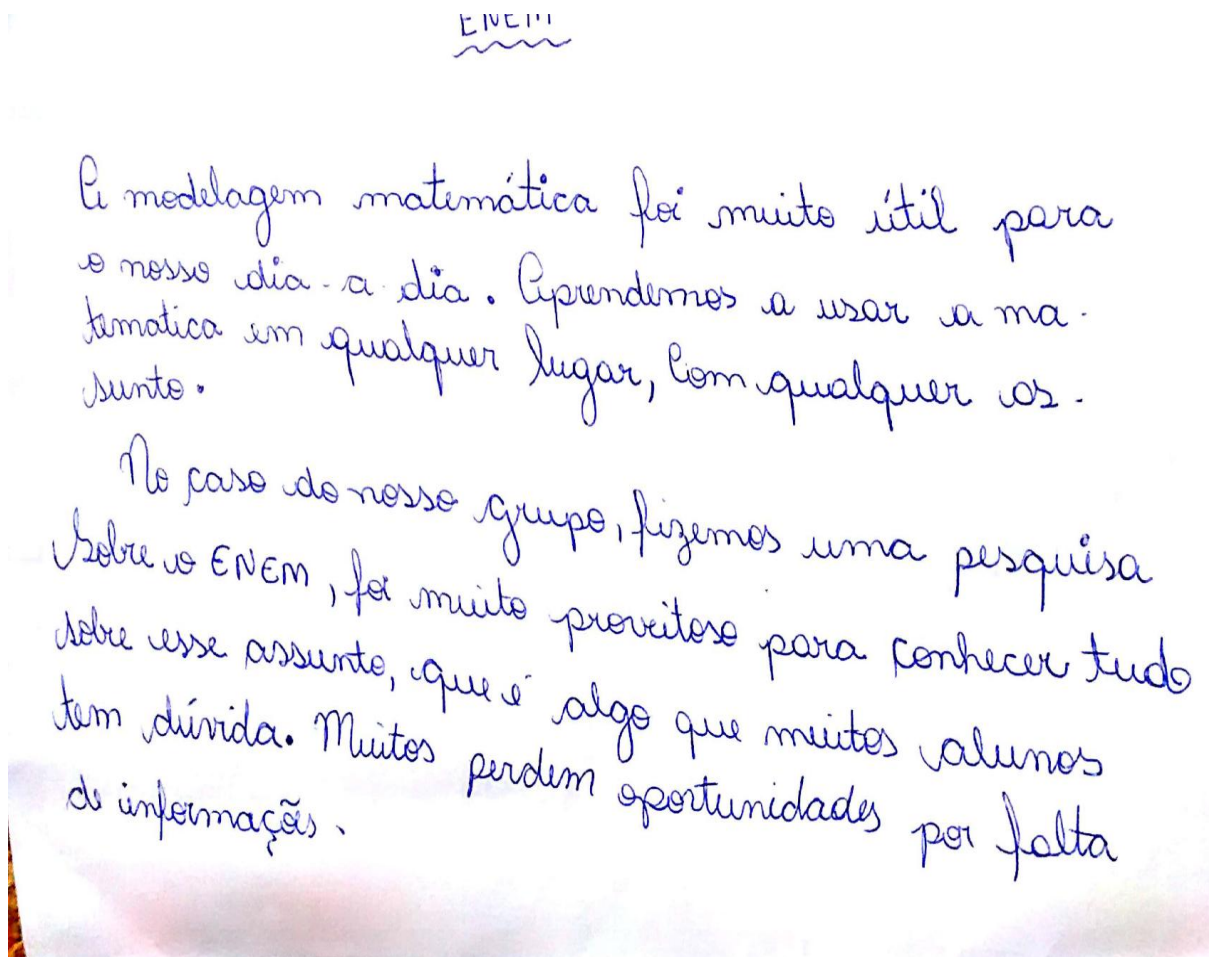 ENEM
A modelagem matemática foi muito útil para
o nosso dia-a dia. Aprendemos a usar a ma-
tematica em qualquer lugar, com qualquer as-
sunto.
No caso do nosso grupo, fizemos uma pesquisa
sobre o ENEM, foi muito proveitoso para conhecer tudo
sobre esse assunto, que é algo que muitos alunos
tem dúvida. Muitos perdem oportunidades por falta
de informações.